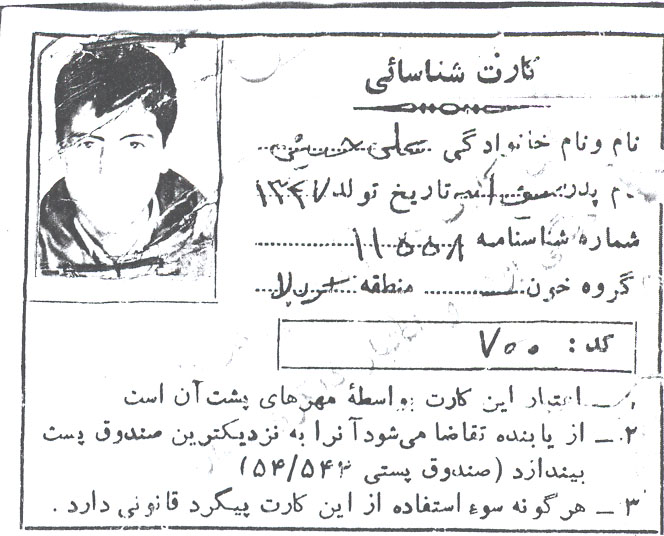 کارت شناسائی
نام ونام خانوادگی علی
نام پدر تاریخ تولد ۱۳۴۷
شماره شناسنامه ۱۱۵۵۸
گروه خون منطقه
کد: ۷۰۰
۱_ اعتبار این کارت بواسطهٔ مهرهای پشت آن است
۲_ از یابنده تقاضا می‌شود آنرا به نزدیکترین صندوق پست
بیندازد (صندوق پستی ۵۴/۵۴۴)
۳_ هرگونه سوء استفاده از این کارت پیگرد قانونی دارد.